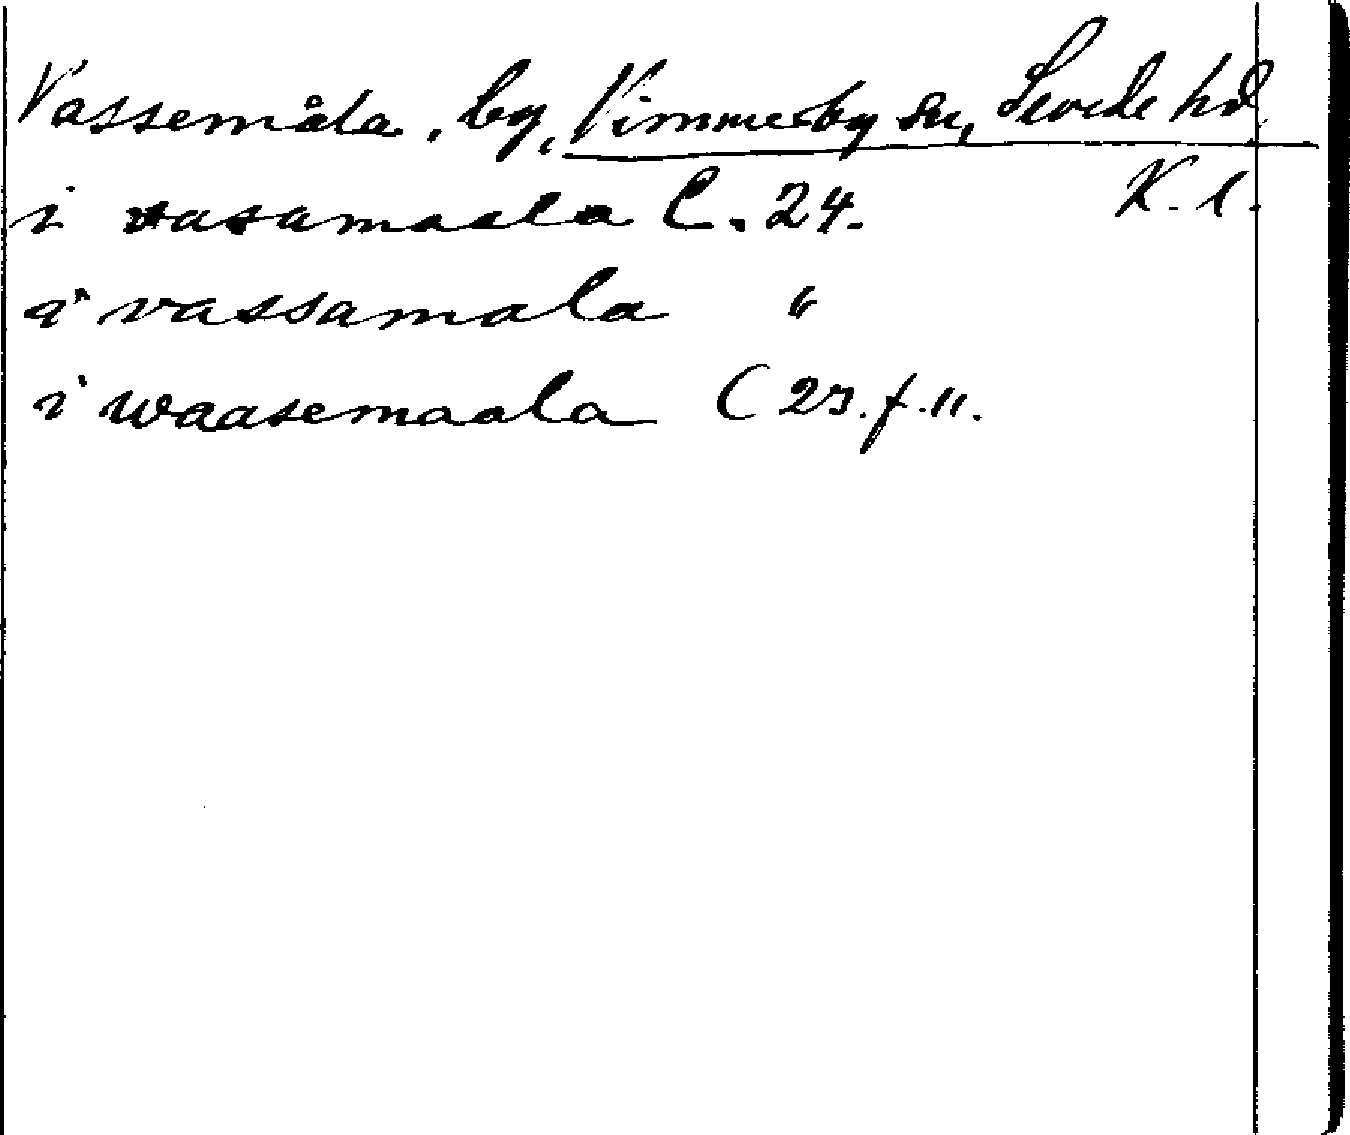 Vassemåla, by, Vimmerby sn, Sevede hd
K. l.
i vasamaala C. 24.
i vassamala "
i waasemaala C 25. f. 11.